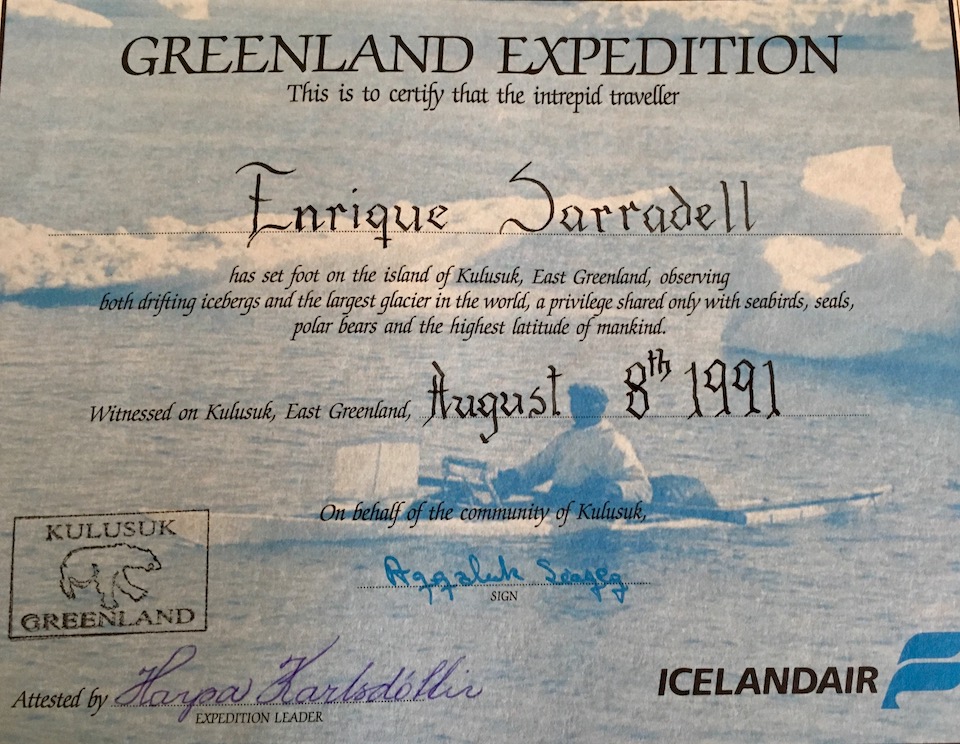 GREENLAND EXPEDITION
This is to certify that the intrepid traveller
Enrique Sarradell
has set foot on the island of Kulusuk, East Greenland, observing
both drifting icebergs and the largest glacier in the world, a privilege shared only with seabirds, seals,
polar bears and the highest latitude of mankind.
Witnessed on Kulusuk, East Greenland, August 8th 1991
On behalf of the community of Kulusuk,
KULUSUK
GREENLAND
Aqqaluk
SIGN
Attested by Harpa Karlsdóttir
EXPEDITION LEADER
ICELANDAIR